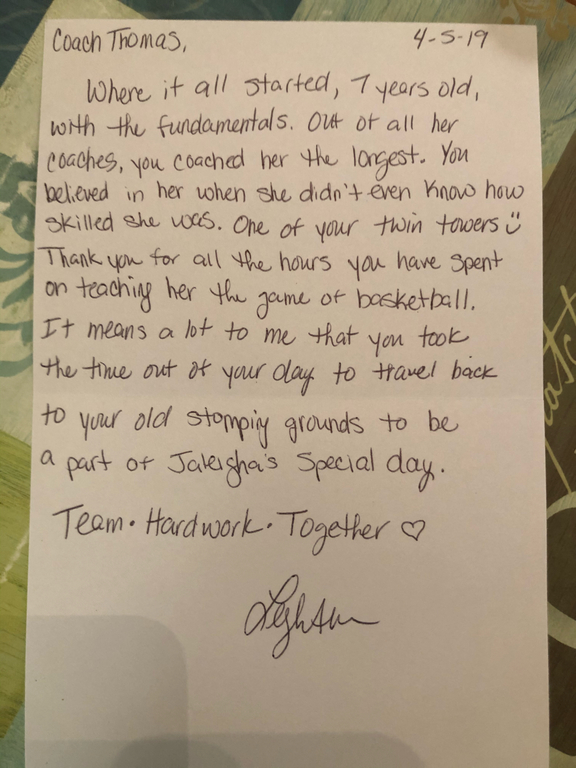 Coach Thomas,
4-5-19
Where it all started, 7 years old,
with the fundamentals. Out of all her
coaches, you coached her the longest. You
believed in her when she didn't even know how
skilled she was. One of your twin towers
Thank you for all the hours you have spent
on teaching her the game of basketball.
It means a lot to me that you took
the time out of your day to travel back
to your old stomping grounds to be
a part of Jaleigha's Special day.
Team · Hardwork · Together ♡
LeighAnn